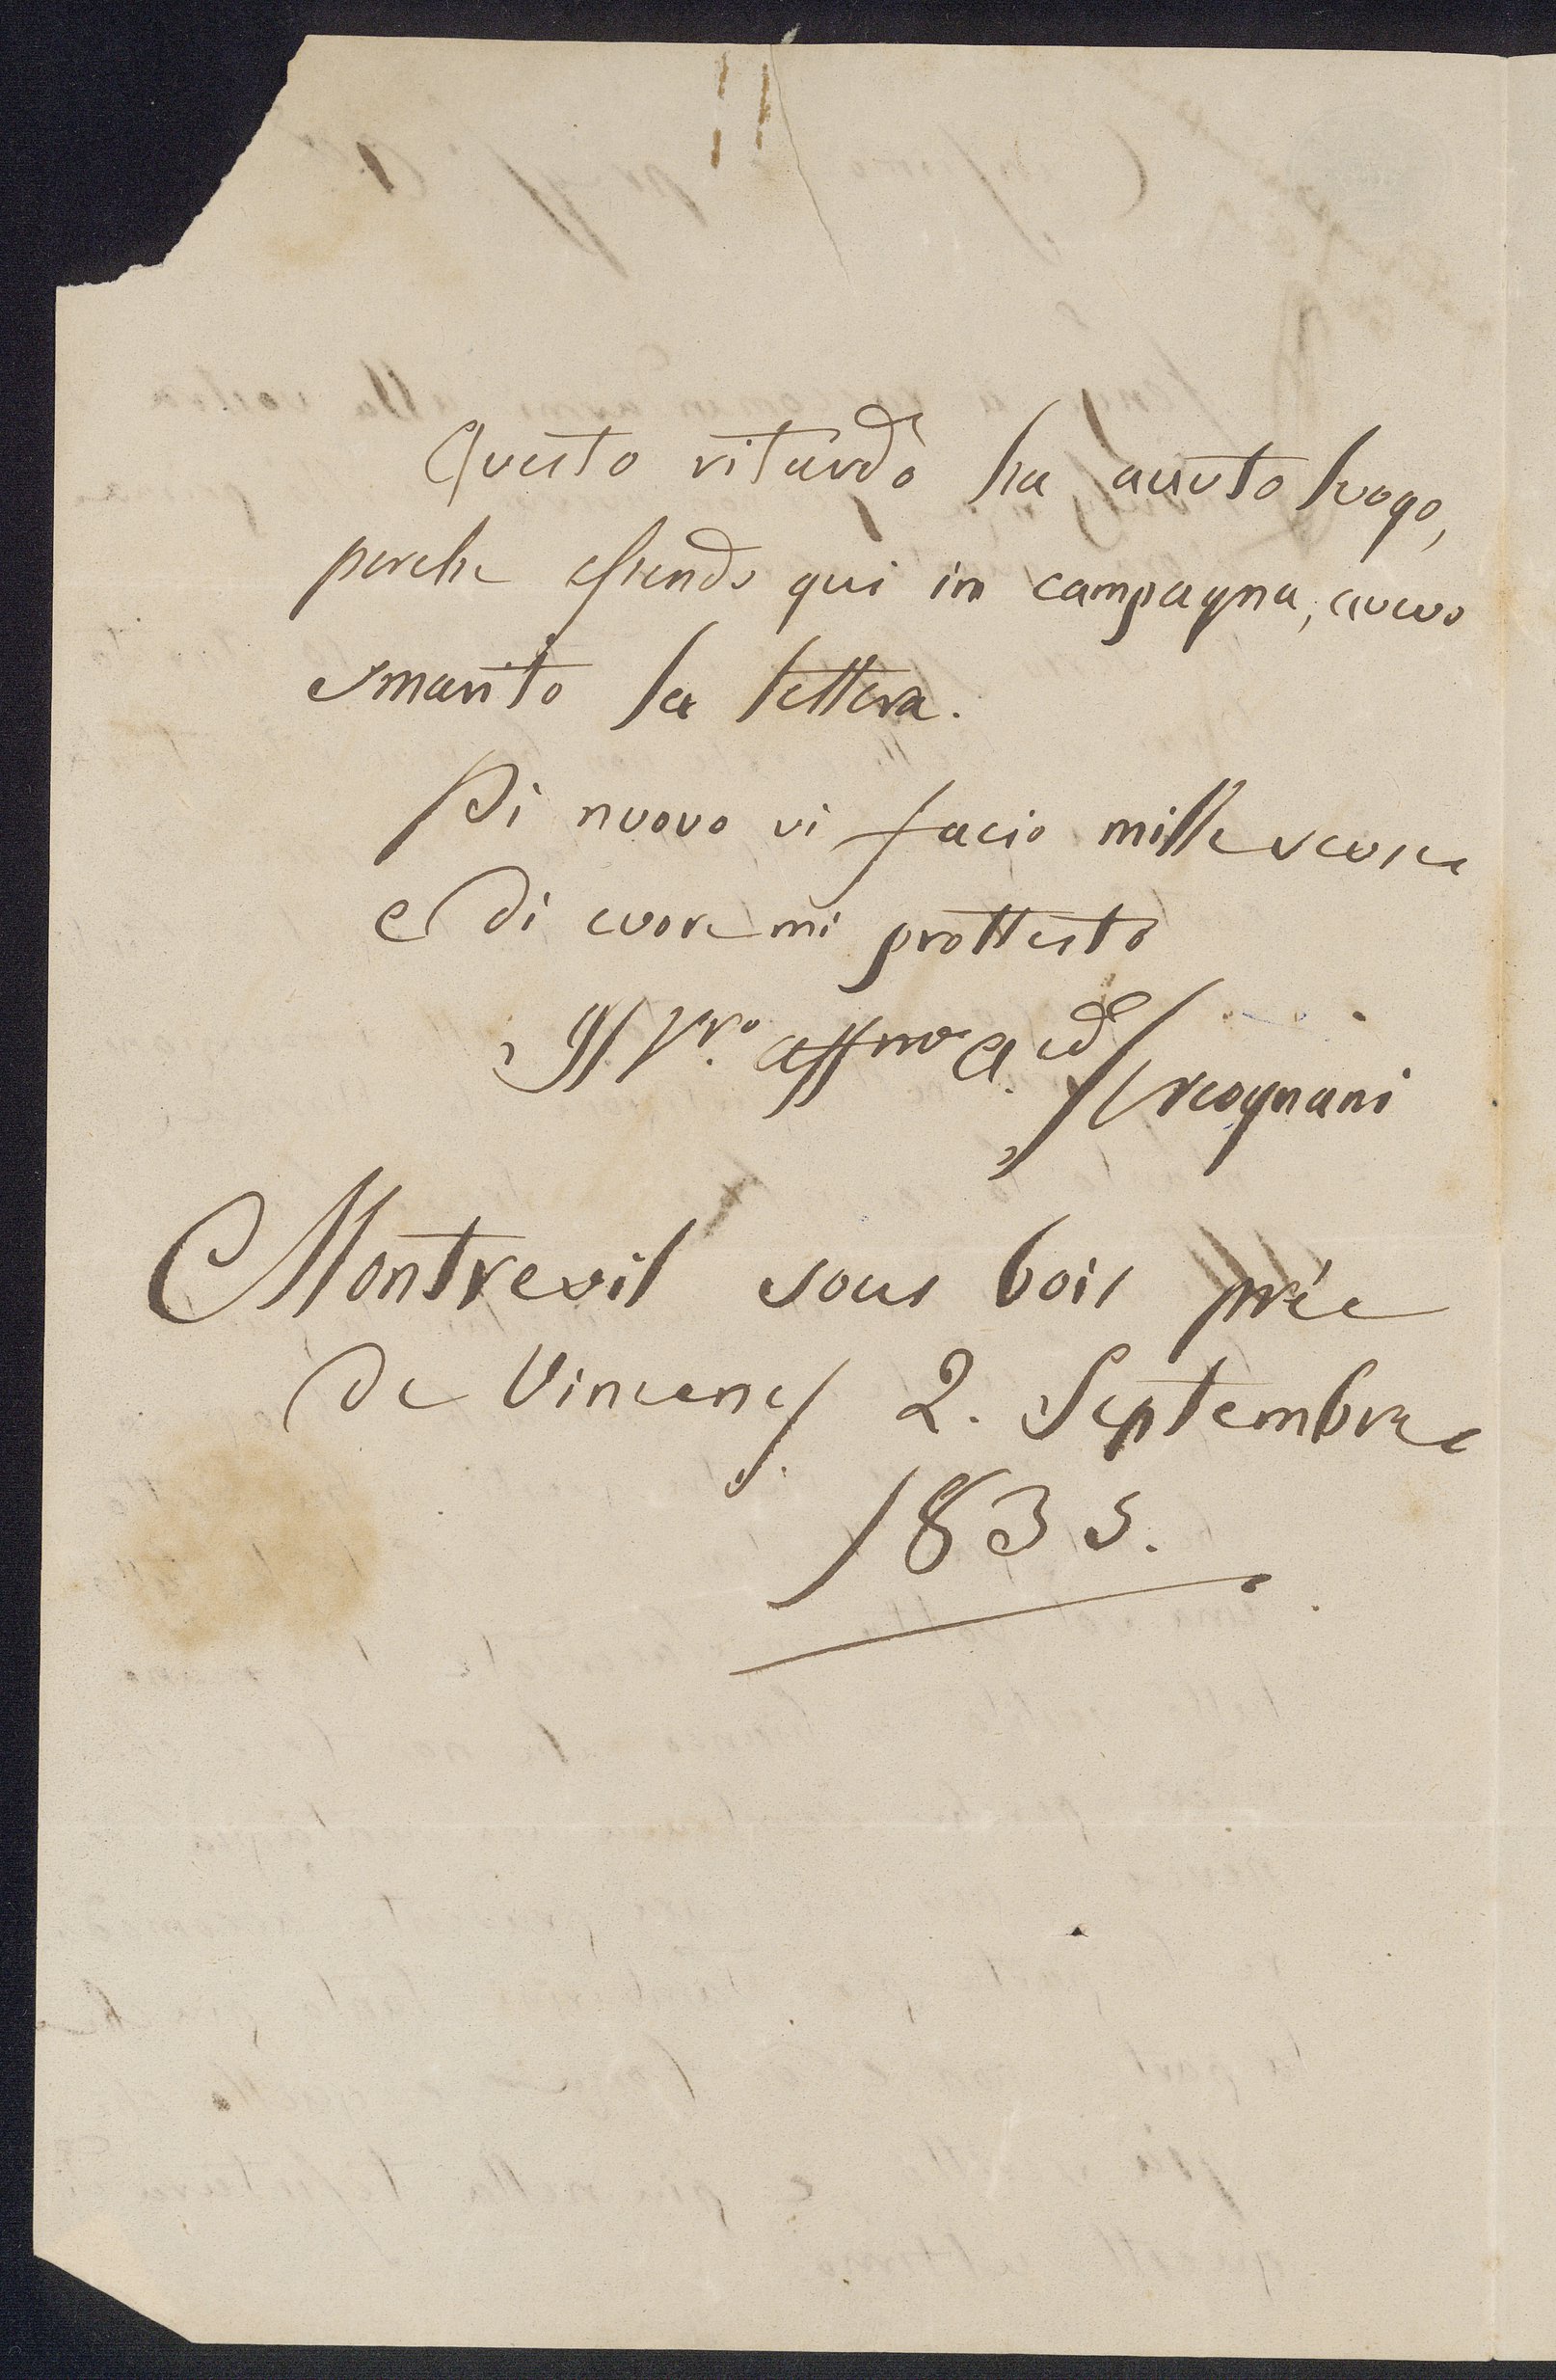 Questo ritardo ha auuto luogo,
perche essendo qui in campagna, avevo
smarito la lettera.
Di nuovo vi facio mille scuse
e di cuore mi prottesto
Il Vro. affmo
Montrevil sous bois prèe
de Vincenes 2. Septembre
1835.